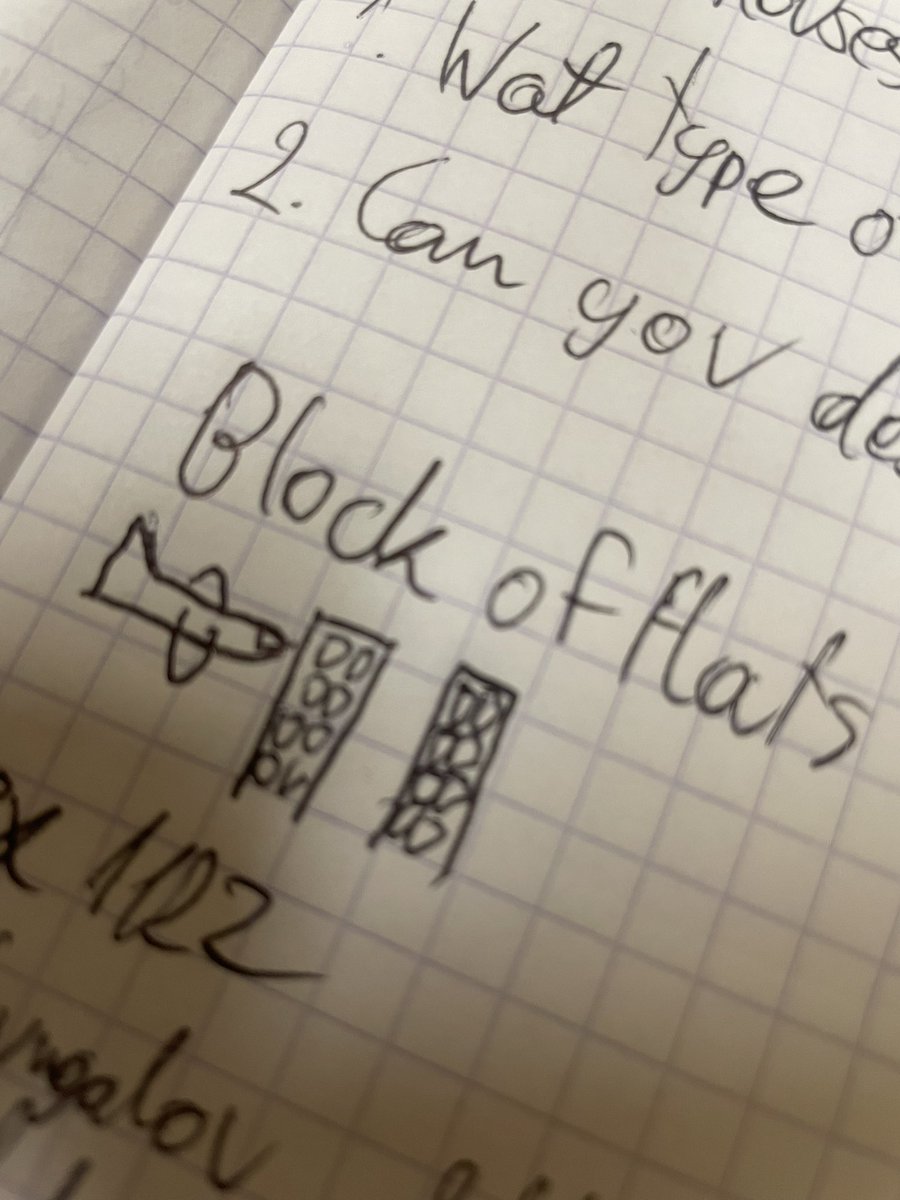 houses
1. Wat type o
2. Can you do
Block of flats
ex 1122
ungalov